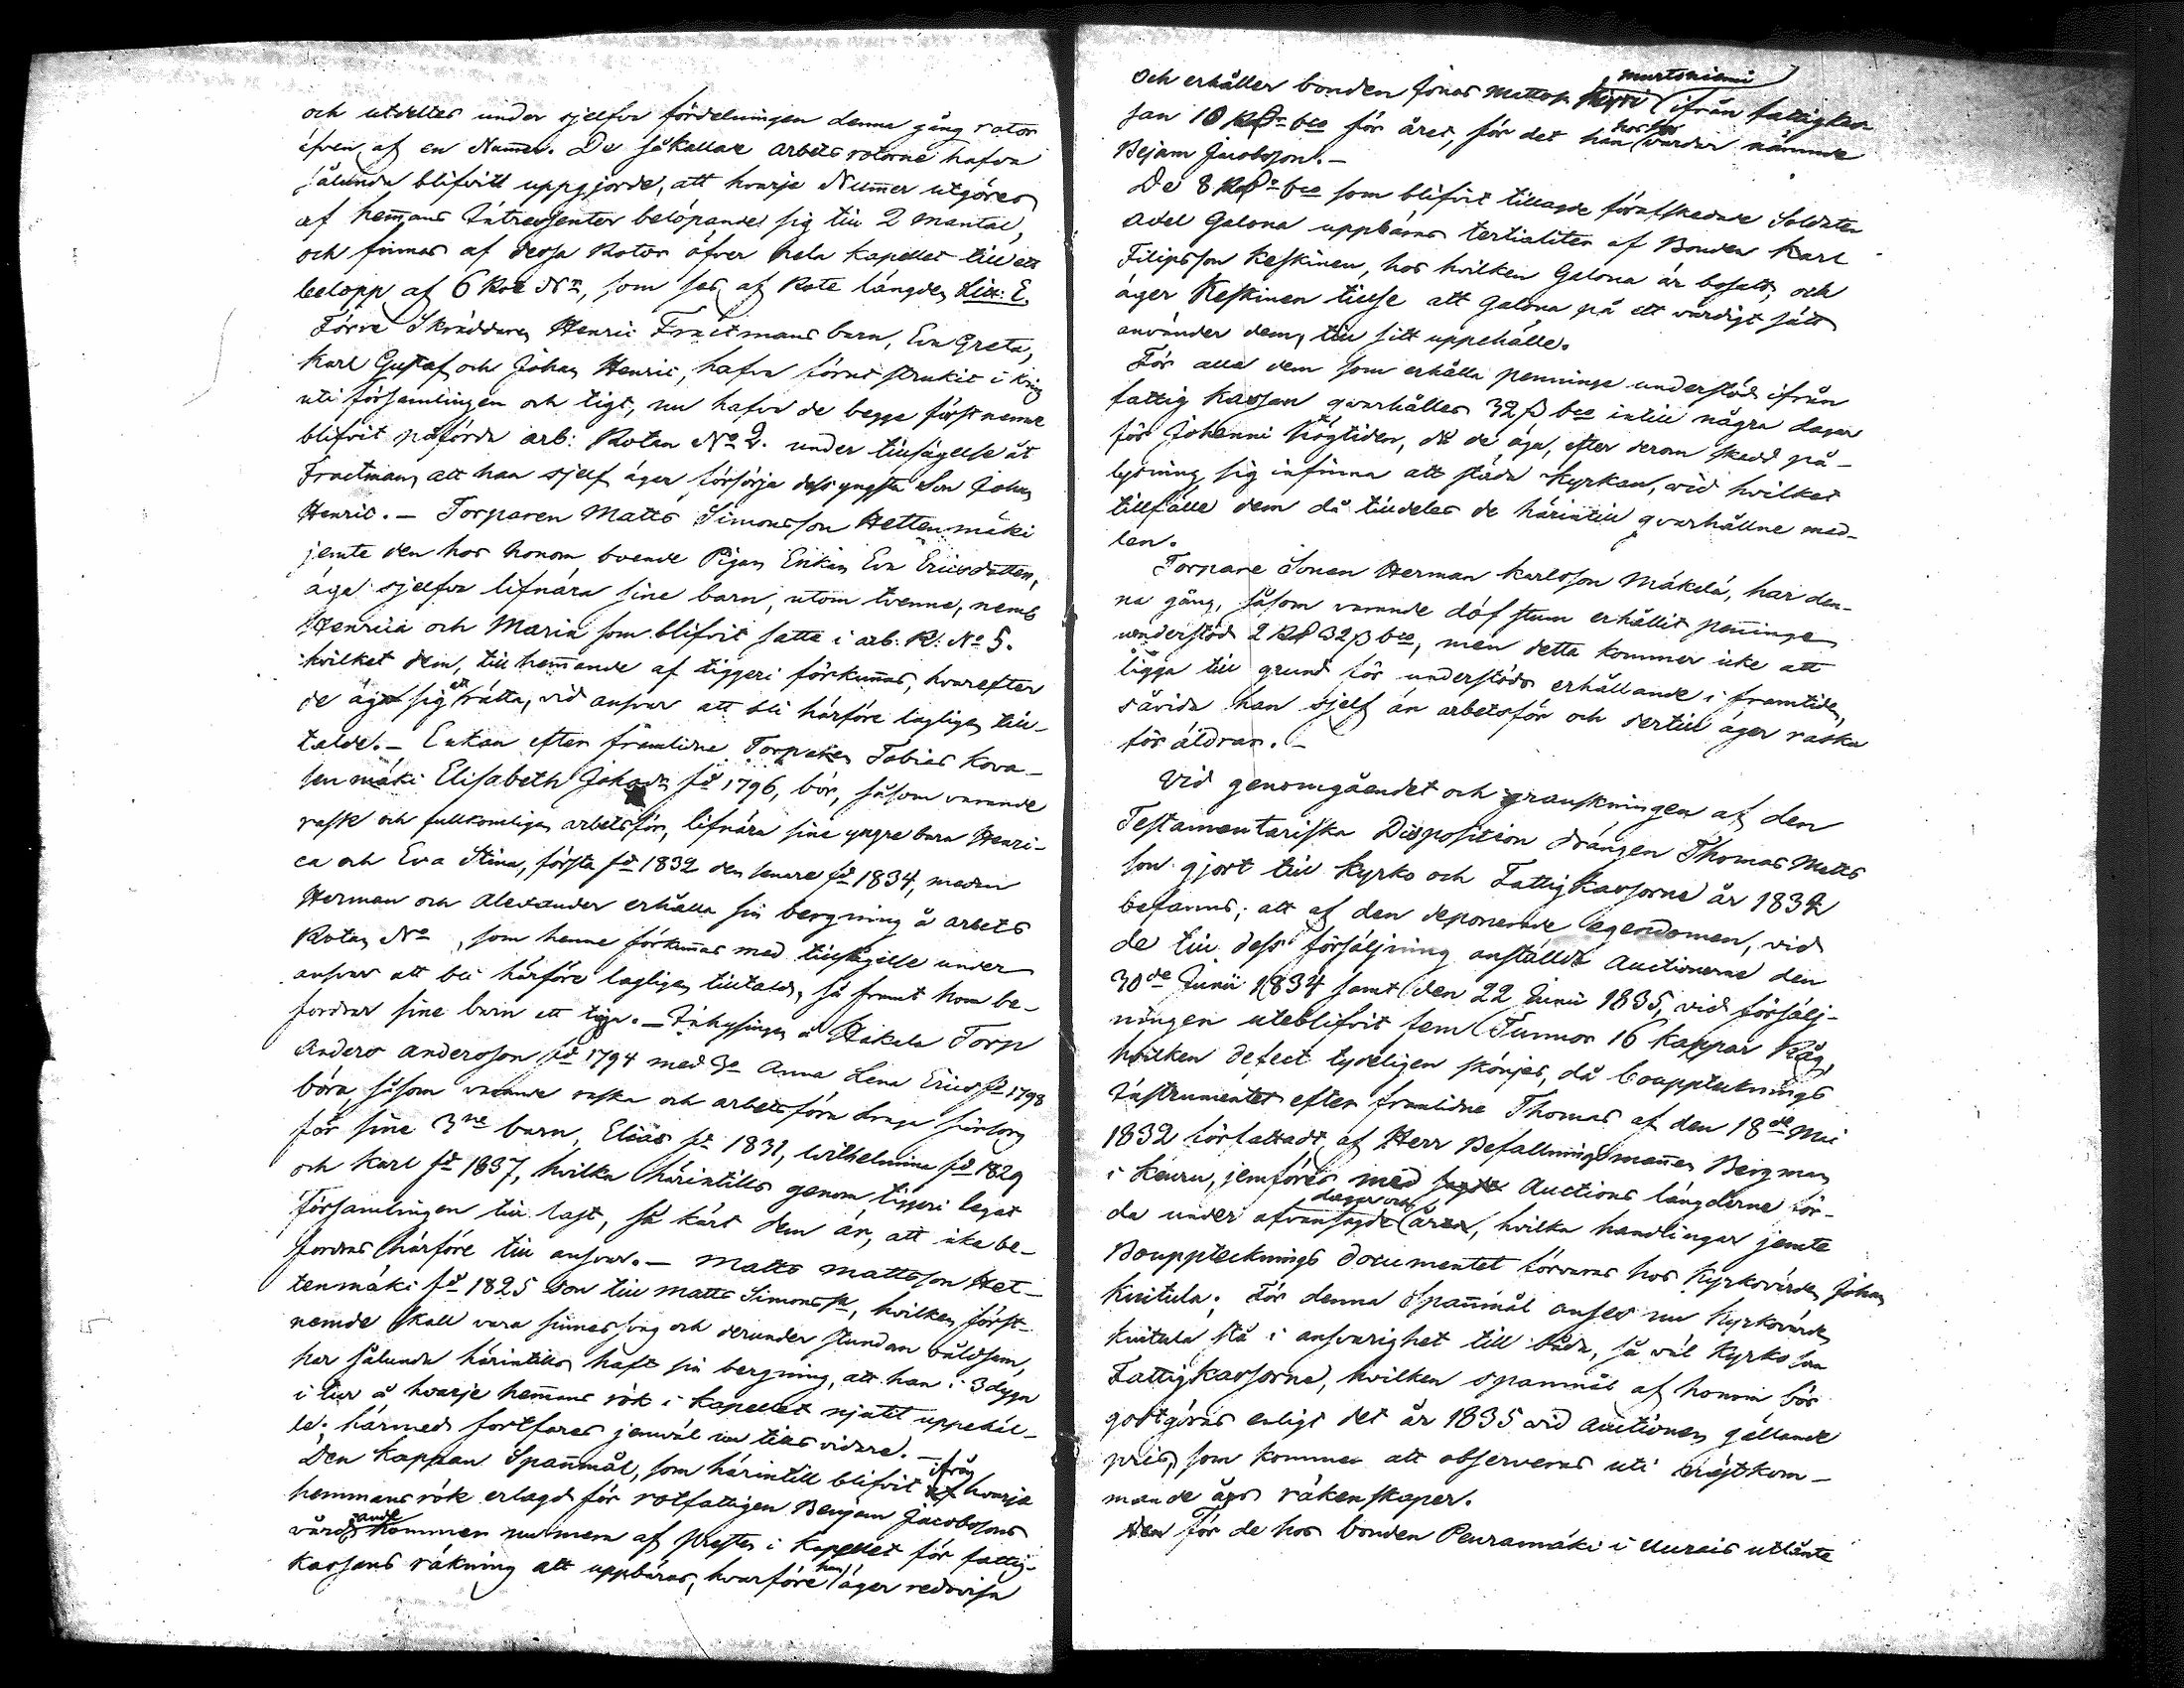 och utdeltes under sjelfva fördelningen denna gång rotor
öfven af en Num̄er. De såkallade arbets rotorne hafva
sålunda blifvitt uppgjorde, att hvarje Num̄er utgöres
af hem̄ans Intressenter belöpande sig till 2 mantal,
och finnas af dessa Rotor öfver hela kapellet till ett
belopp af 6 Rote No, som ses af Rote längden Litt: E.
Förre Skräddaren Henric Fractmans barn, Eva Greta,
Karl Gustaf och Johan Henric, hafva förut strukit i kring
uti församlingen och tigt, nu hafva de begge förstnemde
blifvit påförda arb: Rotan No 2. under tillsägelse åt
Fractman, att han sjelf äger försörja dess yngsta Son Johan
Henric. — Torparen Matts Simonsson Hettenmäki
jemte den hos honom boende Pigan Enkan Eva Ericsdotter,
äga sjelfva lifnära sine barn, utom tvenne, neml
Henrica och Maria som blifvit satte i arb: R: No 5.
hvilket dem, till hem̄ande af tiggeri förkun̄as, hvarefter
de äga sig att rätta, vid ansvar att bli härföre lagligen till-
talde. — Enkan efter framlidne Torparen Tobias Kova-
senmäki Elisabeth Johadr fd 1796, bör, såsom varande
rask och fullkomligen arbetsför, lifnära sine yngre barn Henri-
ca och Eva Stina, första fd 1832 den senare fd 1834, medan
Herman och Alexander erhålla sin bergning å arbets
Rotan No , som henne förkun̄as med tillsägelse under
ansvar att bli härföre lagligen tilltald, så framt hon be-
fordrar sine barn att tigga. — Inhysingen å Hakala Torp
Anders Andersson fd 1794 med Ho Anna Lena Erics fd 1798
böra såsom varande raska och arbetsföra draga försorg
för sine 3ne barn, Elias fd 1831, Wilhelmina fd 1829
och Karl fd 1837, hvilka härintills genom tiggeri legat
Församlingen till last, så kärt dem är, att icke be-
fordras härföre till ansvar. — Matts Mattsson Het-
tenmäki fd 1825 Son till Matts Simonss:n, hvilken först-
nemde skall vara sinnessvag och derunder stundom våldsam,
har sålunda härintills haft sin bergning, att han i 3 dygn
i tur å hvarje hem̄ans rök i Kapellet njutit uppehäl-
le; härmed fortfares jemväl nu tills vidare. —
Den Kappan Span̄mål, som härintill blifvit ifrån hvarje
hemmans rök erlagd för rotfattigen Benjam Jacobssons
vårdande kommer nu mera af Presten i Kapellet för fattig-
kassans räkning att uppbäras, hvarföre han äger redovisa
Och erhåller bonden Jonas Mattss: Murtoniemi ifrån fattigkas
san 10 Rd:r bco för året, för det han hos sig vårdar nämnde
Bejam Jacobsson. —
De 8 Rd:r bco som blifvit tillagde förafskedade Soldaten
Adel Galona uppbäras tertialiter af Bonden Karl
Filipsson Keskinen, hos hvilken Galona är bosatt, och
äger Keskinen tillse att Galona på ett värdigt sätt
använder dem, till sitt uppehälle.
För alla dem som erhålla penninge understöd ifrån
fattig Kassan qvarhålles 32 β bco intill några dagar
för Johanni högtiden, då de äga, efter derom skedd på-
lysning, sig infinna att städa Kyrkan, vid hvilket
tillfälle dem då tilldeles de härintill qvarhållne med-
len.
Torpare Sonen Herman Karlsson Mäkelä, har den-
na gång, såsom varande döfstum erhållit pen̄inge
understöd 2 Rd 32 β bco, men detta kommer icke att
ligga till grund för understöds erhållande i framtiden,
såvida han sjelf är arbetsför och dertill äger raska
föräldrar. —
Vid genomgåendet och granskningen af den
Testamentariska Disposition drängen Thomas Matts
son gjort till Kyrko och Fattig Kassorne år 1832
befanns; att af den deponerade egendomen, vid
de till dess försäljning anställda Auctionerne den
30de Junii 1834 samt den 22 Junii 1835, vid försälj-
ningen uteblifvit fem Tunnor 16 kappar Råg,
hvilken defect tydeligen skönjes, då bouppteknings
Instrumentet efter framlidne Thomas af den 18de Mai
1832 författadt af Herr Befallningsman̄en Bergman
i Keuru, jemföres med Auctions längderne för-
da under ofvansagde dagar och år, hvilka handlingar jemte
Bouppteknings Documentet förvaras hos Kyrkovärden Johan
Kuitula. För denna Span̄mål anses nu Kyrkovärden
Kuitula stå i ansvarighet till båda, så väl Kyrko som
Fattigkassorne, hvilken spannmål af honom bör
godtgöras enligt det år 1835 vid Auctionen gällande
pris, som kommer att observeras uti nästkom-
mande års räkenskaper.
För de hos bonden Peuramäki i Uurais utlånte